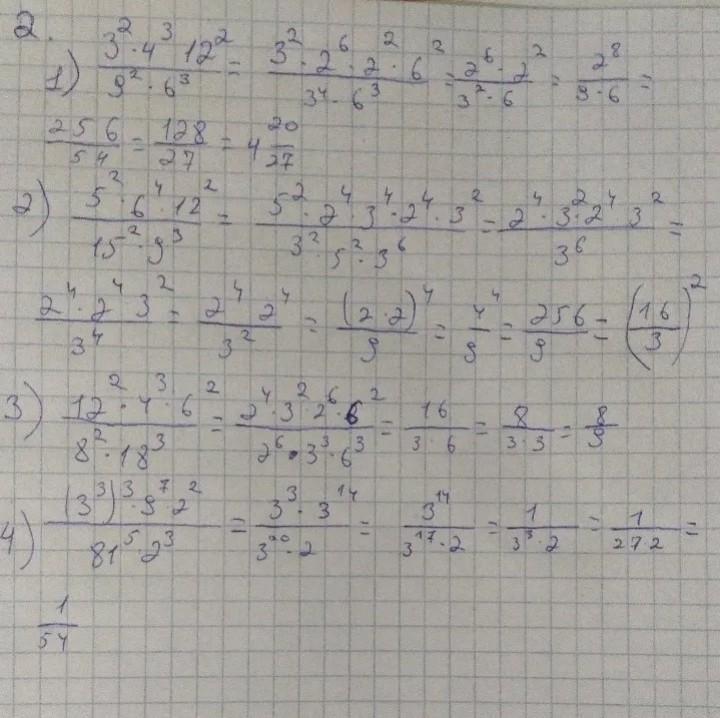 2.
1) (3² · 4³ 12²)/(9² · 6³) = (3² · 2⁶ · 2² · 6²)/(3⁴ · 6³) = (2⁶ · 2²)/(3² · 6) = 2⁸/(9 · 6) =
256/54 = 128/27 = 4 20/27
2) (5² · 6⁴ · 12²)/(15² · 9³) = (5² · 2⁴ · 3⁴ · 2⁴ · 3²)/(3² · 5² · 3⁶) = (2⁴ · 3² · 2⁴ 3²)/3⁶ =
(2⁴ · 2⁴ 3²)/3⁴ = (2⁴ 2⁴)/3² = (2 · 2)⁴/9 = 4⁴/9 = 256/9 = (16/3)²
3) (12² · 4³ · 6²)/(8² · 18³) = (2⁴ · 3² · 2⁶ · 6²)/(2⁶ · 3³ · 6³) = 16/(3 · 6) = 8/(3 · 3) = 8/9
4) ((3³)³ · 9⁷ · 2²)/(81⁵ · 2³) = (3³ · 3¹⁴)/(3²⁰ · 2) = 3¹⁴/(3¹⁷ · 2) = 1/(3³ · 2) = 1/(27 · 2) =
1/54